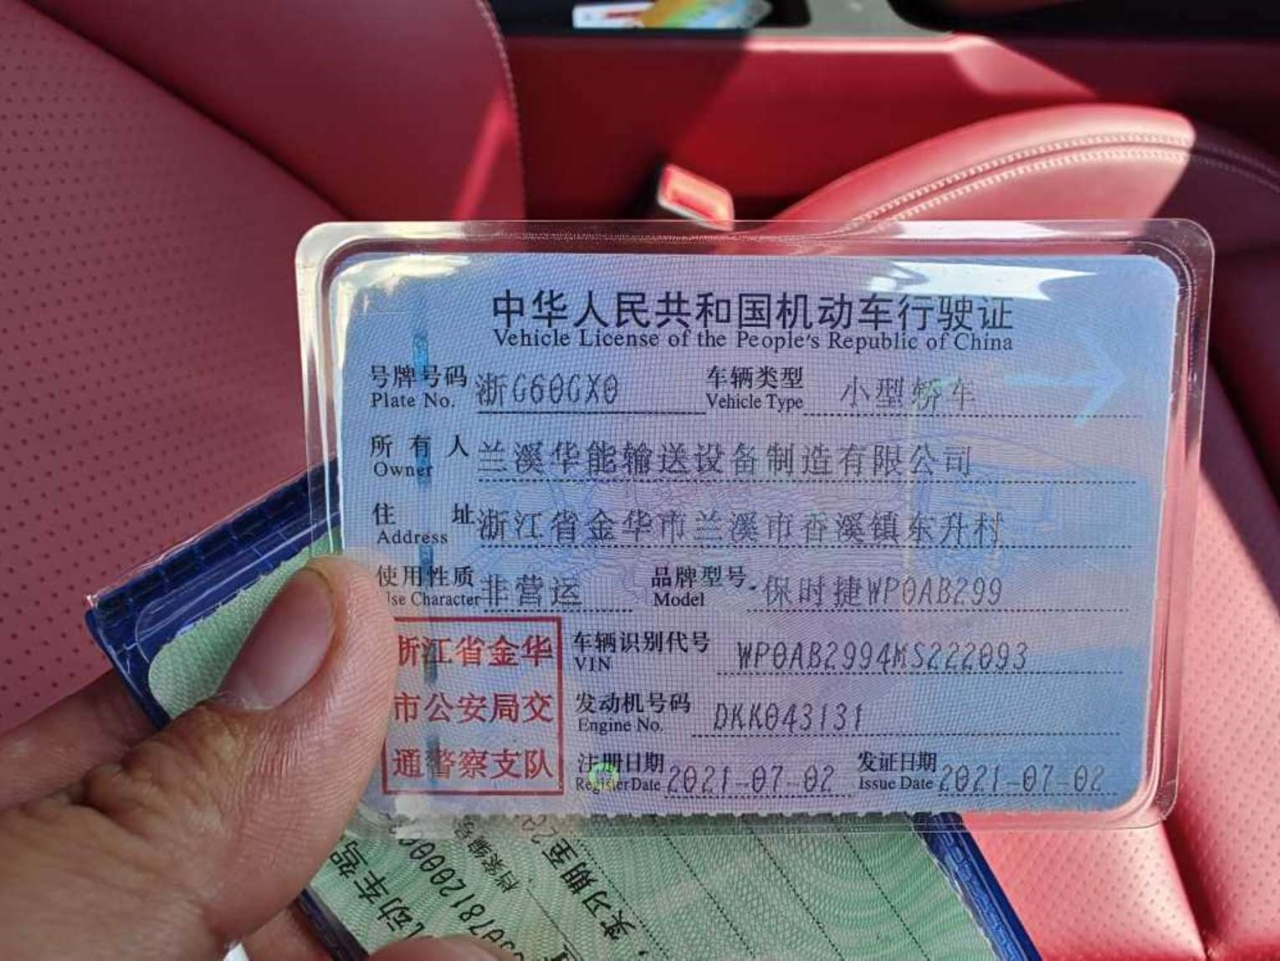 中华人民共和国机动车行驶证
Vehicle License of the People's Republic of China
号牌号码 浙G60GX0 车辆类型 小型轿车
Plate No. Vehicle Type
所有人 兰溪华能输送设备制造有限公司
Owner
住址 浙江省金华市兰溪市香溪镇东升村
Address
使用性质 非营运 品牌型号 保时捷WP0AB299
Use Character Model
浙江省金华
市公安局交
通警察支队
车辆识别代号 WP0AB2994MS222093
VIN
发动机号码 DKK043131
Engine No.
注册日期 2021-07-02 发证日期 2021-07-02
Register Date Issue Date
动车驾
档案编号
实习期至